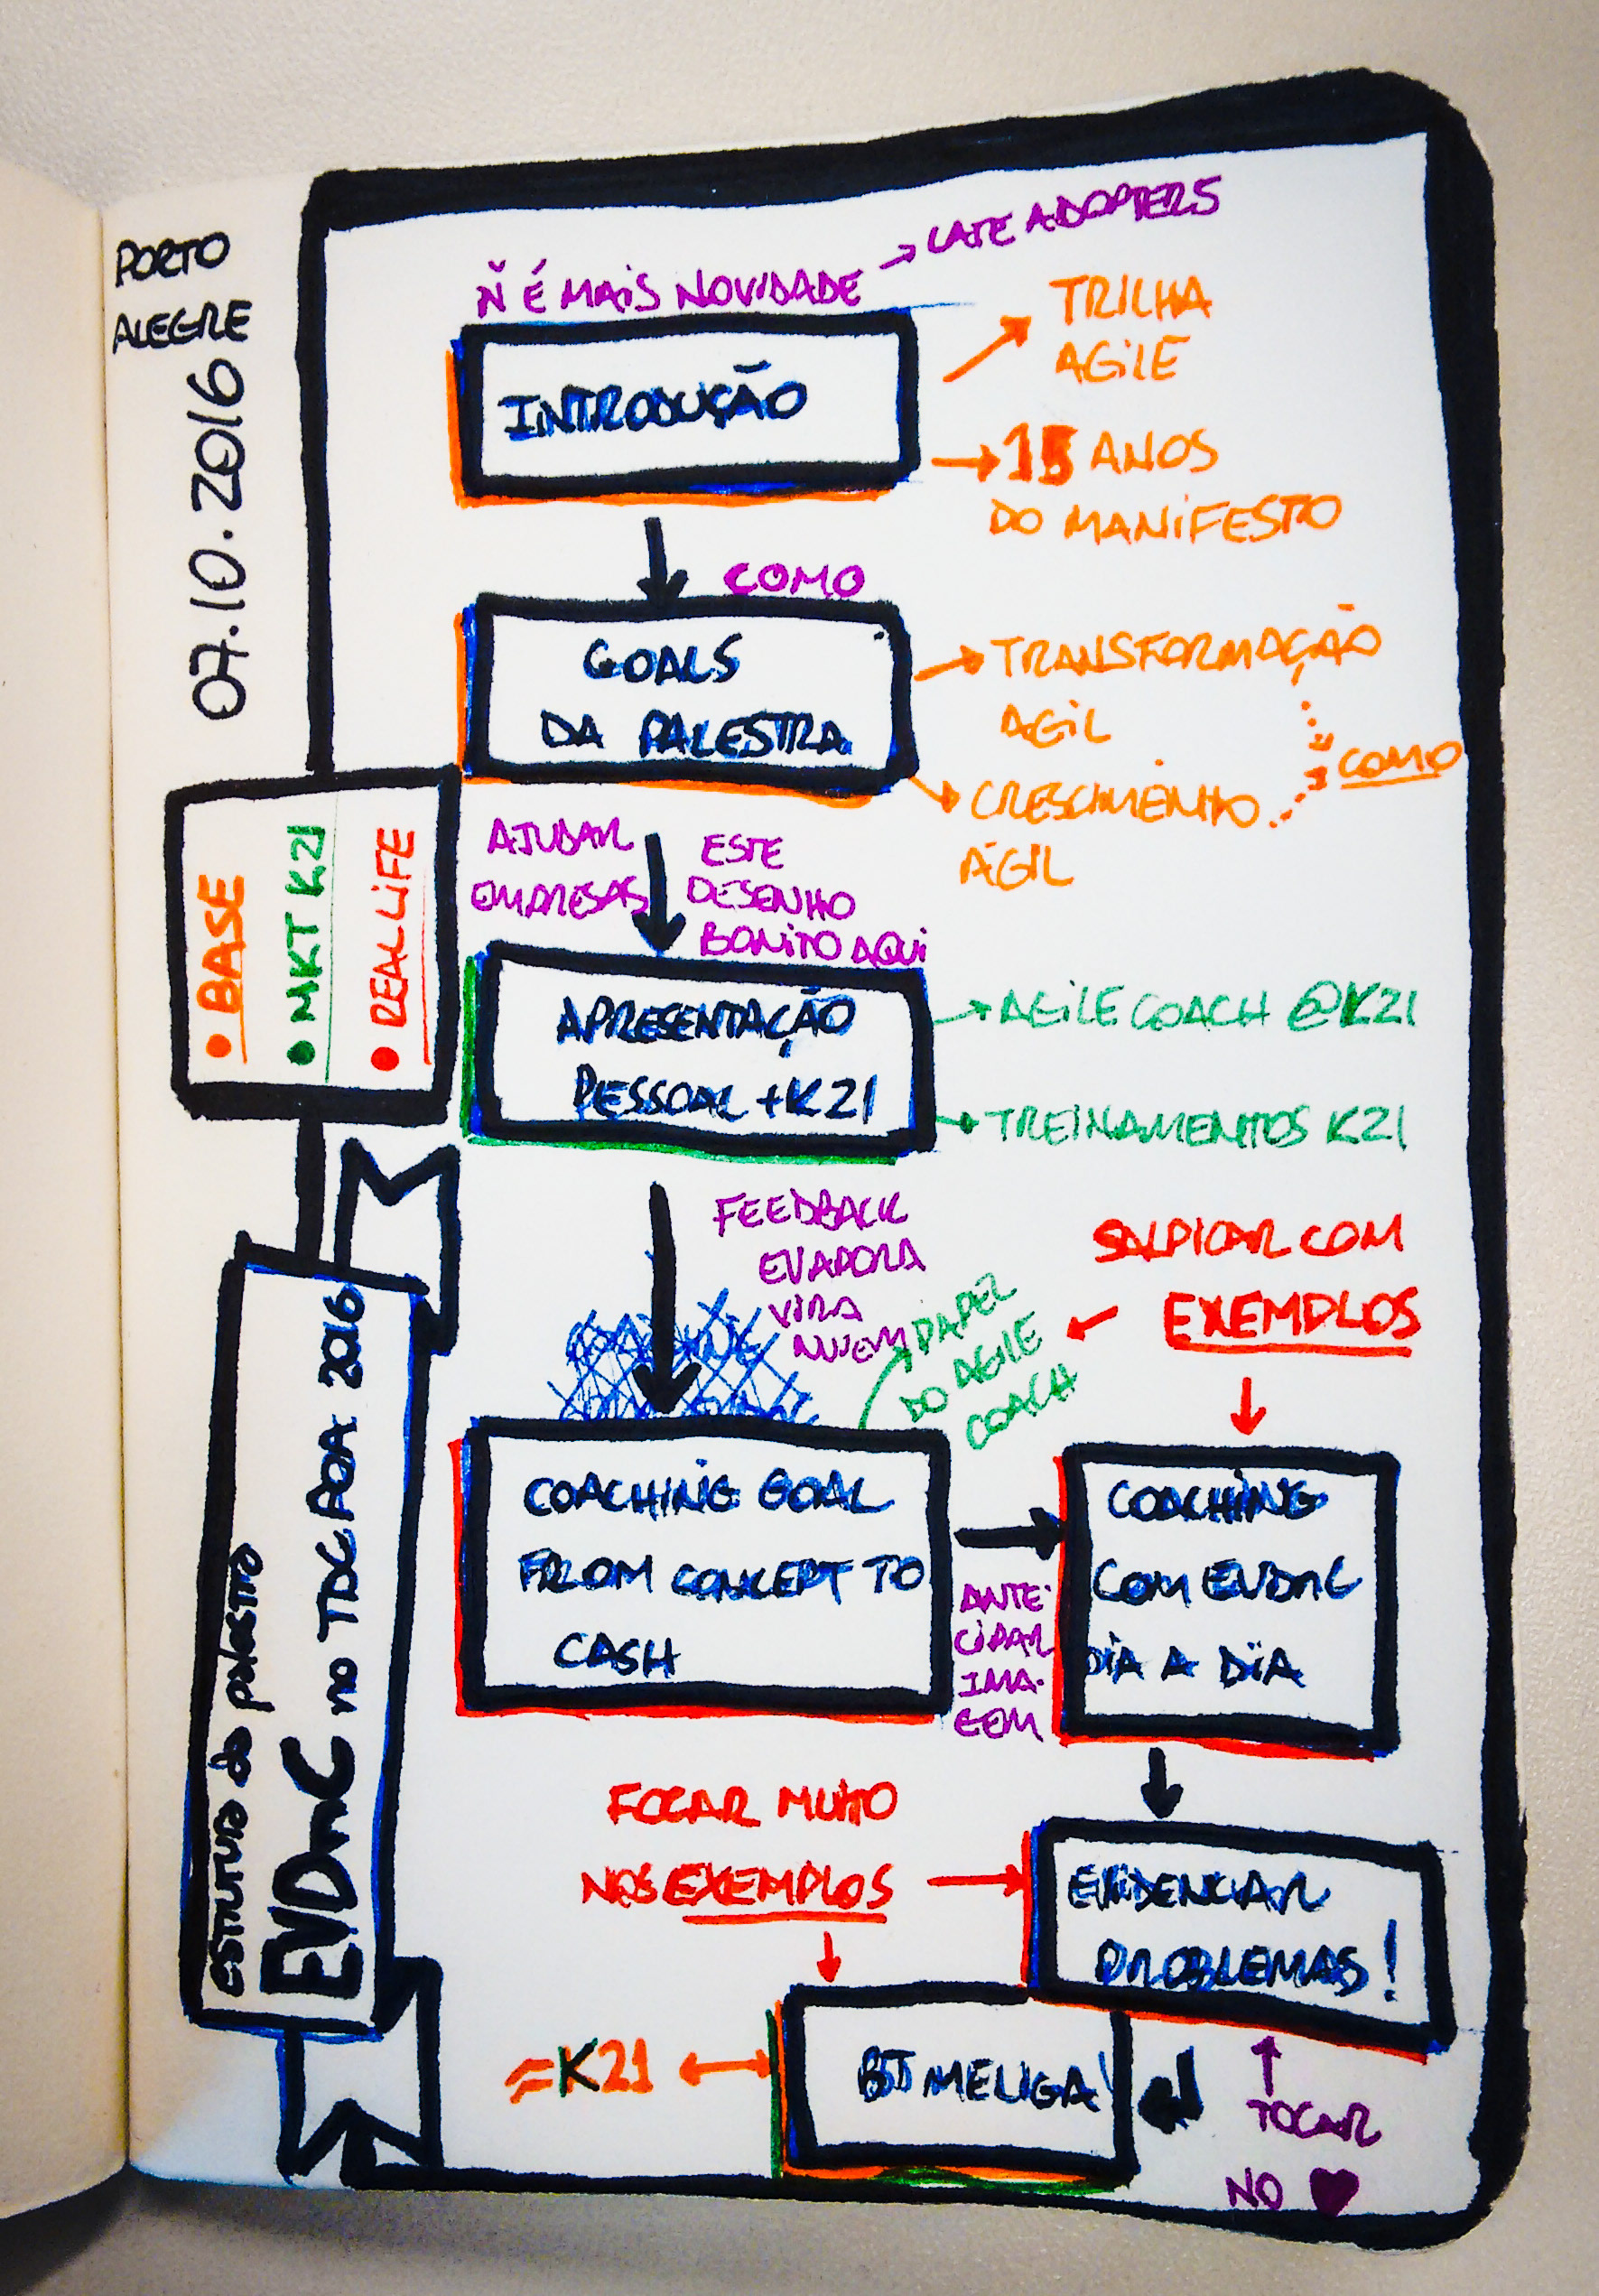 PORTO
ALEGRE
07.10.2016
Ñ É MAIS NOVIDADE → LATE ADOPTERS
INTRODUÇÃO
TRILHA
AGILE
15 ANOS
DO MANIFESTO
COMO
GOALS
DA PALESTRA
TRANSFORMAÇÃO
AGIL
CRESCIMENTO
ÁGIL
COMO
• BASE
• MKT K21
• REAL LIFE
AJUDAR
EMPRESAS
ESTE
DESENHO
BONITO AQUI
APRESENTAÇÃO
PESSOAL + K21
AGILE COACH @K21
TREINAMENTOS K21
FEEDBACK
EVAPORA
VIRA
NUVEM
PAPEL
DO AGILE
COACH
SALPICAR COM
EXEMPLOS
COACHING GOAL
FROM CONCEPT TO
CASH
ANTE-
CIPAR
IMA-
GEM
COACHING
COM EVDnC
DIA A DIA
FOCAR MUITO
NOS EXEMPLOS
EVIDENCIAR
PROBLEMAS!
≈K21
BJ ME LIGA!
TOCAR
NO ♥
estrutura da palestra
EVDnC no TDC POA 2016